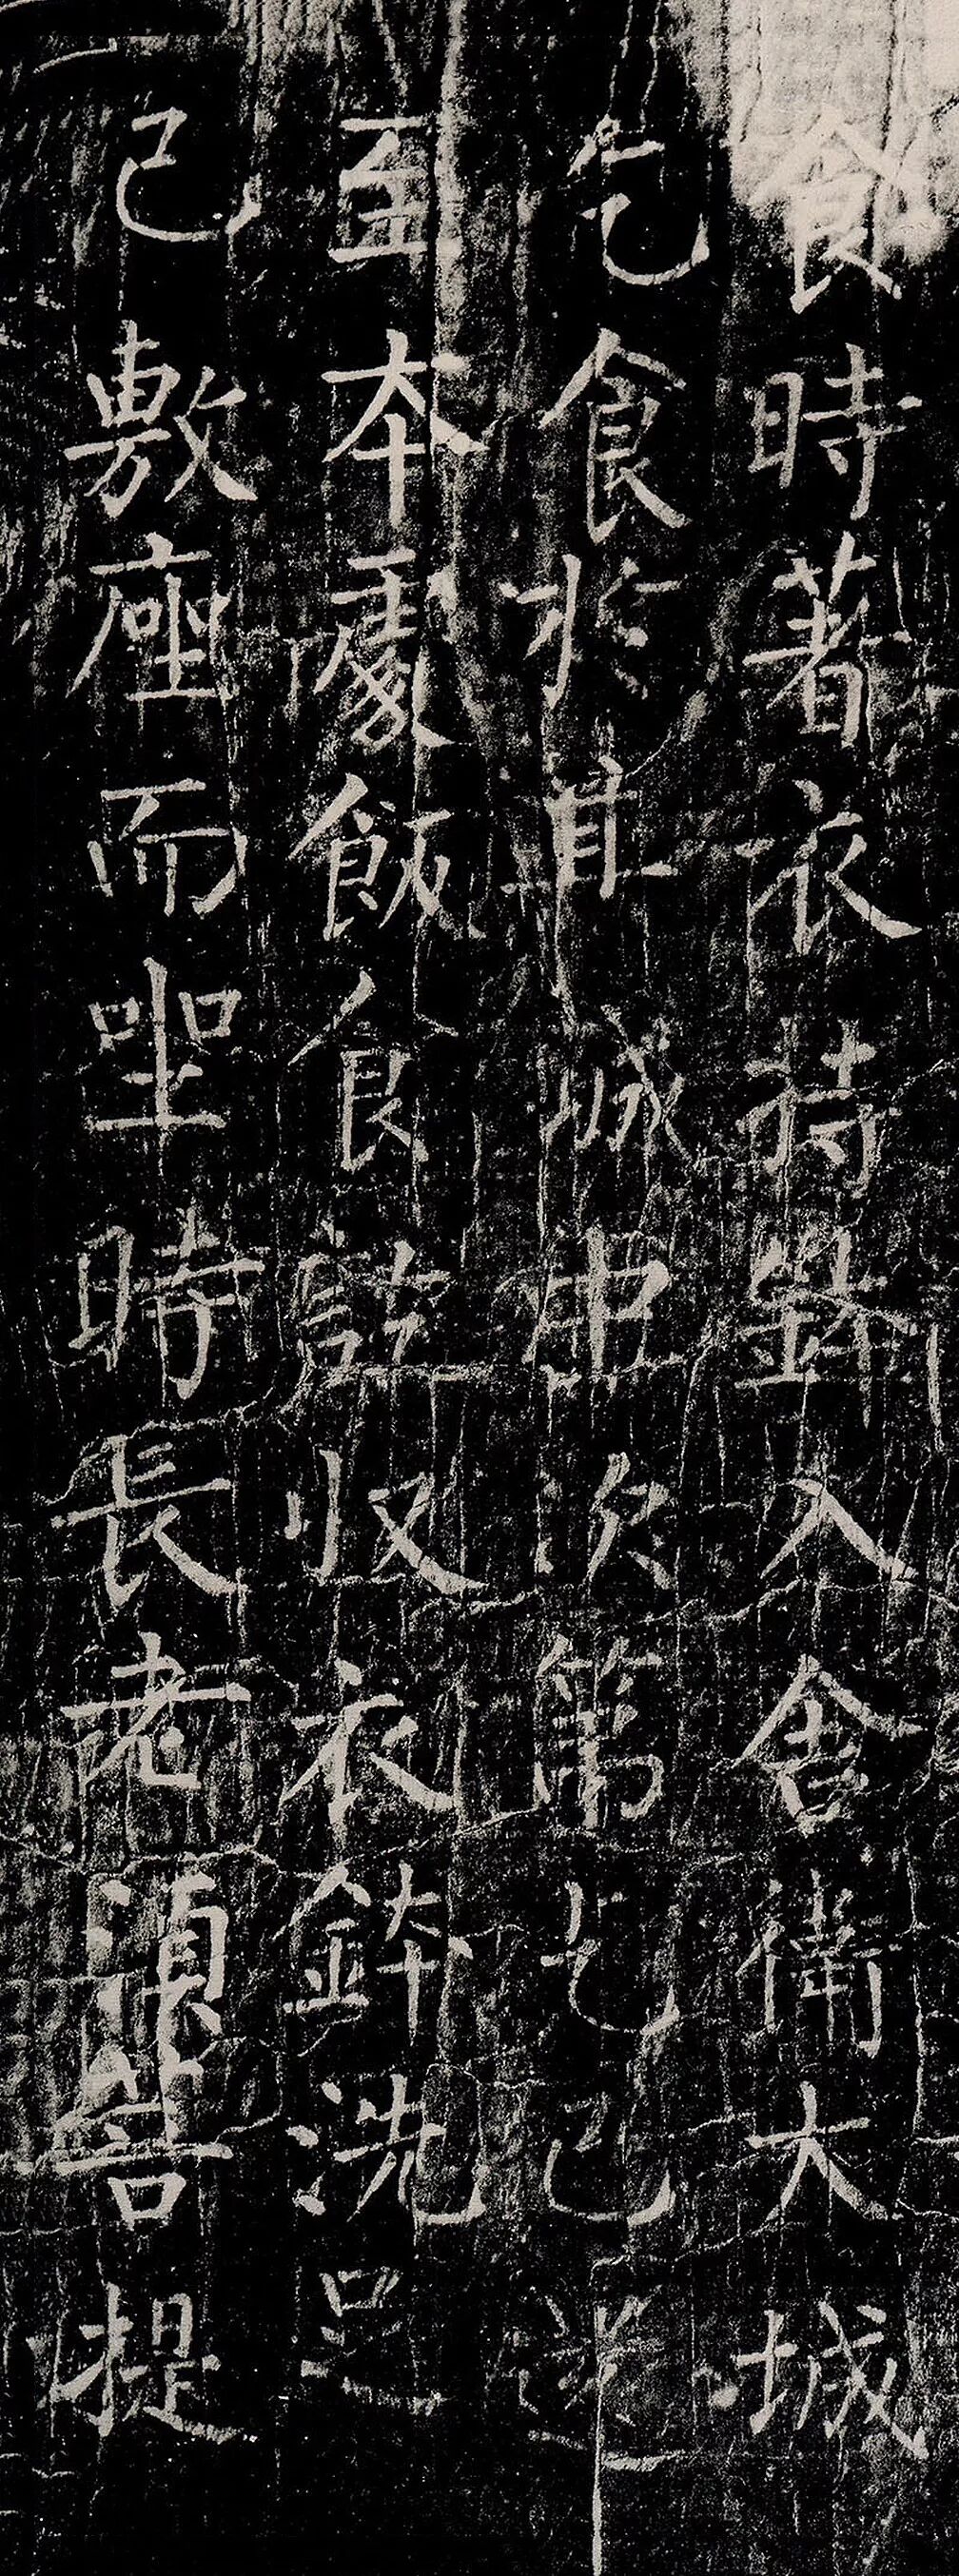 食時著衣持鉢入舍衛大城
乞食於其城中次第乞已還
至本處飯食訖收衣鉢洗足
已敷座而坐時長老須菩提